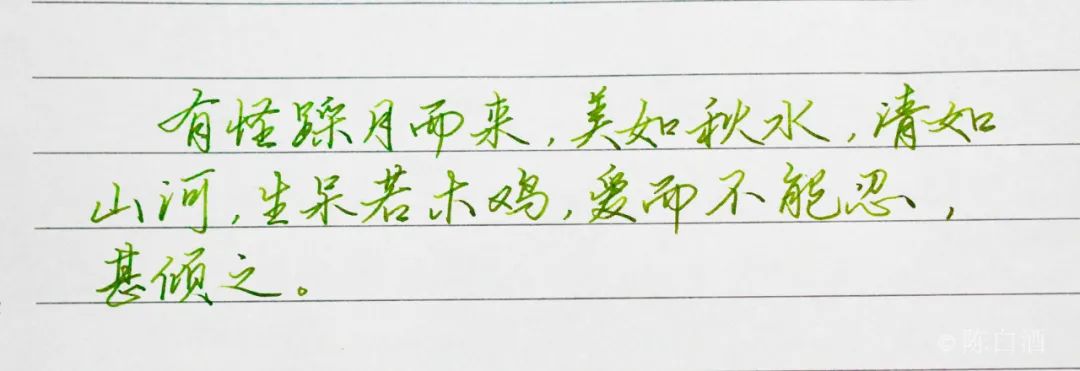 有怪踩月而来，美如秋水，清如
山河，生呆若木鸡，爱而不能忍，
甚倾之。
© 陈白酒